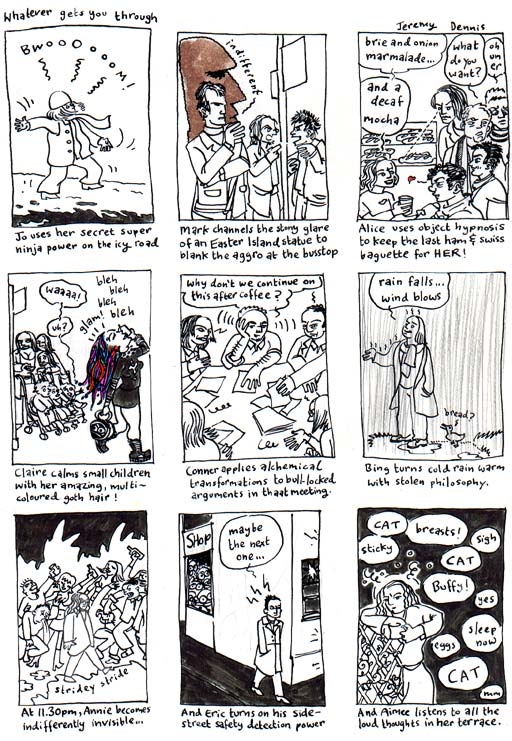 Whatever gets you through
Jeremy Dennis
BWOOOOOOM!
Jo uses her secret super
ninja power on the icy road
indifferent
Mark channels the stony glare
of an Easter Island statue to
blank the aggro at the busstop
brie and onion
marmalade...
and a
decaf
mocha
what
do you
want?
oh
um
er
Alice uses object hypnosis
to keep the last ham & swiss
baguette for HER!
waaaa!
uh?
bleh
bleh
bleh
glam! bleh
Claire calms small children
with her amazing, multi-
coloured goth hair!
why don't we continue on
this after coffee?
Conner applies alchemical
transformations to bull-locked
arguments in thaat meeting.
rain falls...
wind blows
bread?
Bing turns cold rain warm
with stolen philosophy.
stridey stride
At 11.30pm, Annie becomes
indifferently invisible...
SHOP
maybe
the next
one...
And Eric turns on his side-
street safety detection power
CAT
breasts!
sigh
sticky
CAT
Buffy!
yes
sleep
now
eggs
CAT
mm
And Aimee listens to all the
loud thoughts in her terrace.